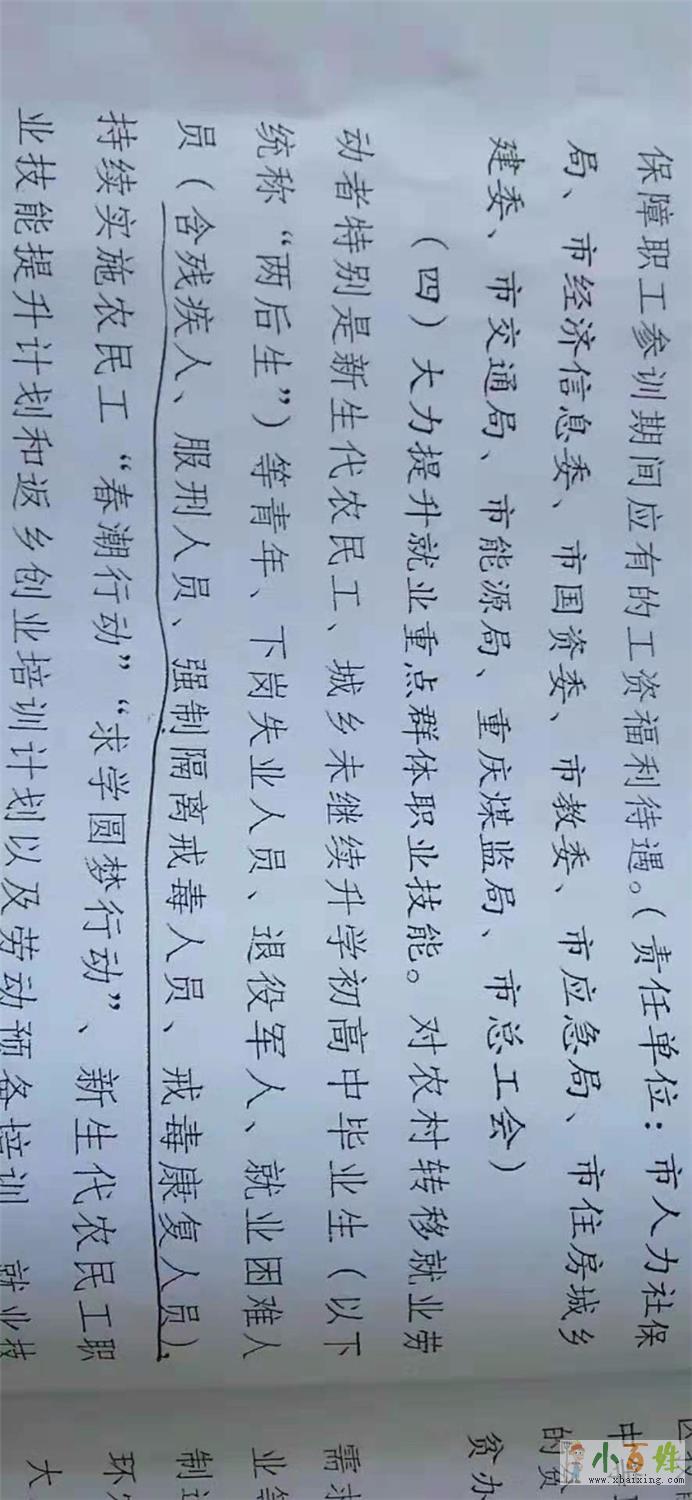 保障职工参训期间应有的工资福利待遇。（责任单位：市人力社保
局、市经济信息委、市国资委、市教委、市应急局、市住房城乡
建委、市交通局、市能源局、重庆煤监局、市总工会）
（四）大力提升就业重点群体职业技能。对农村转移就业劳
动者特别是新生代农民工、城乡未继续升学初高中毕业生（以下
统称“两后生”）等青年、下岗失业人员、退役军人、就业困难人
员（含残疾人、服刑人员、强制隔离戒毒人员、戒毒康复人员），
持续实施农民工“春潮行动”“求学圆梦行动”、新生代农民工职
业技能提升计划和返乡创业培训计划以及劳动预备培训、就业技
中
的贫
贫办
需求
业等
制造
环
大
小百姓
www.xbaixing.com